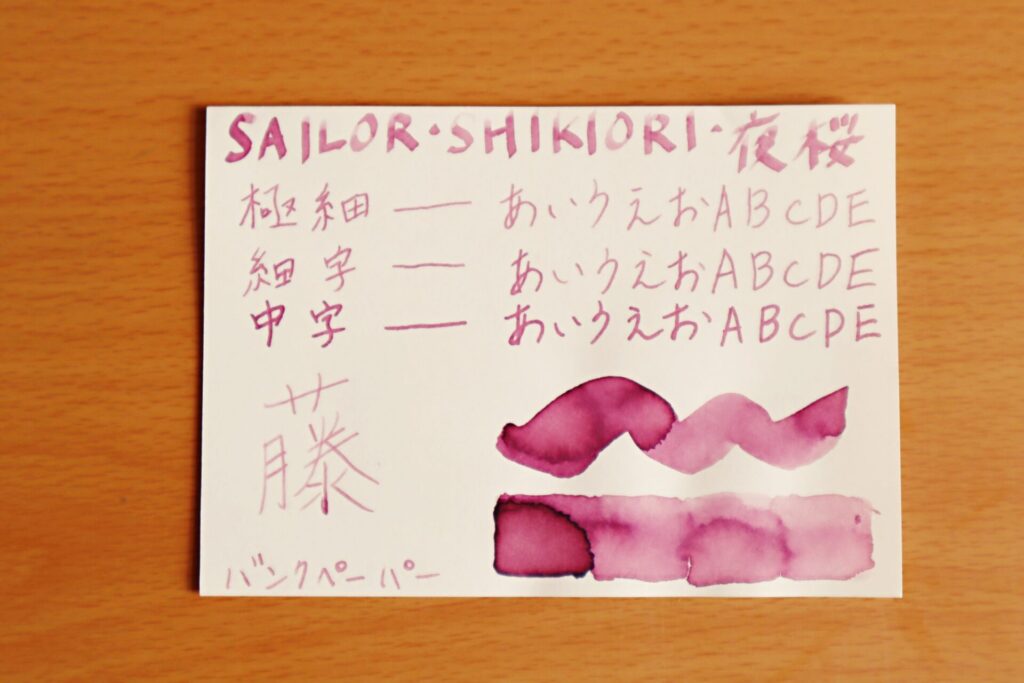 SAILOR・SHIKIORI・夜桜
極細 — あいうえおABCDE
細字 — あいうえおABCDE
中字 — あいうえおABCDE
藤
バンクペーパー